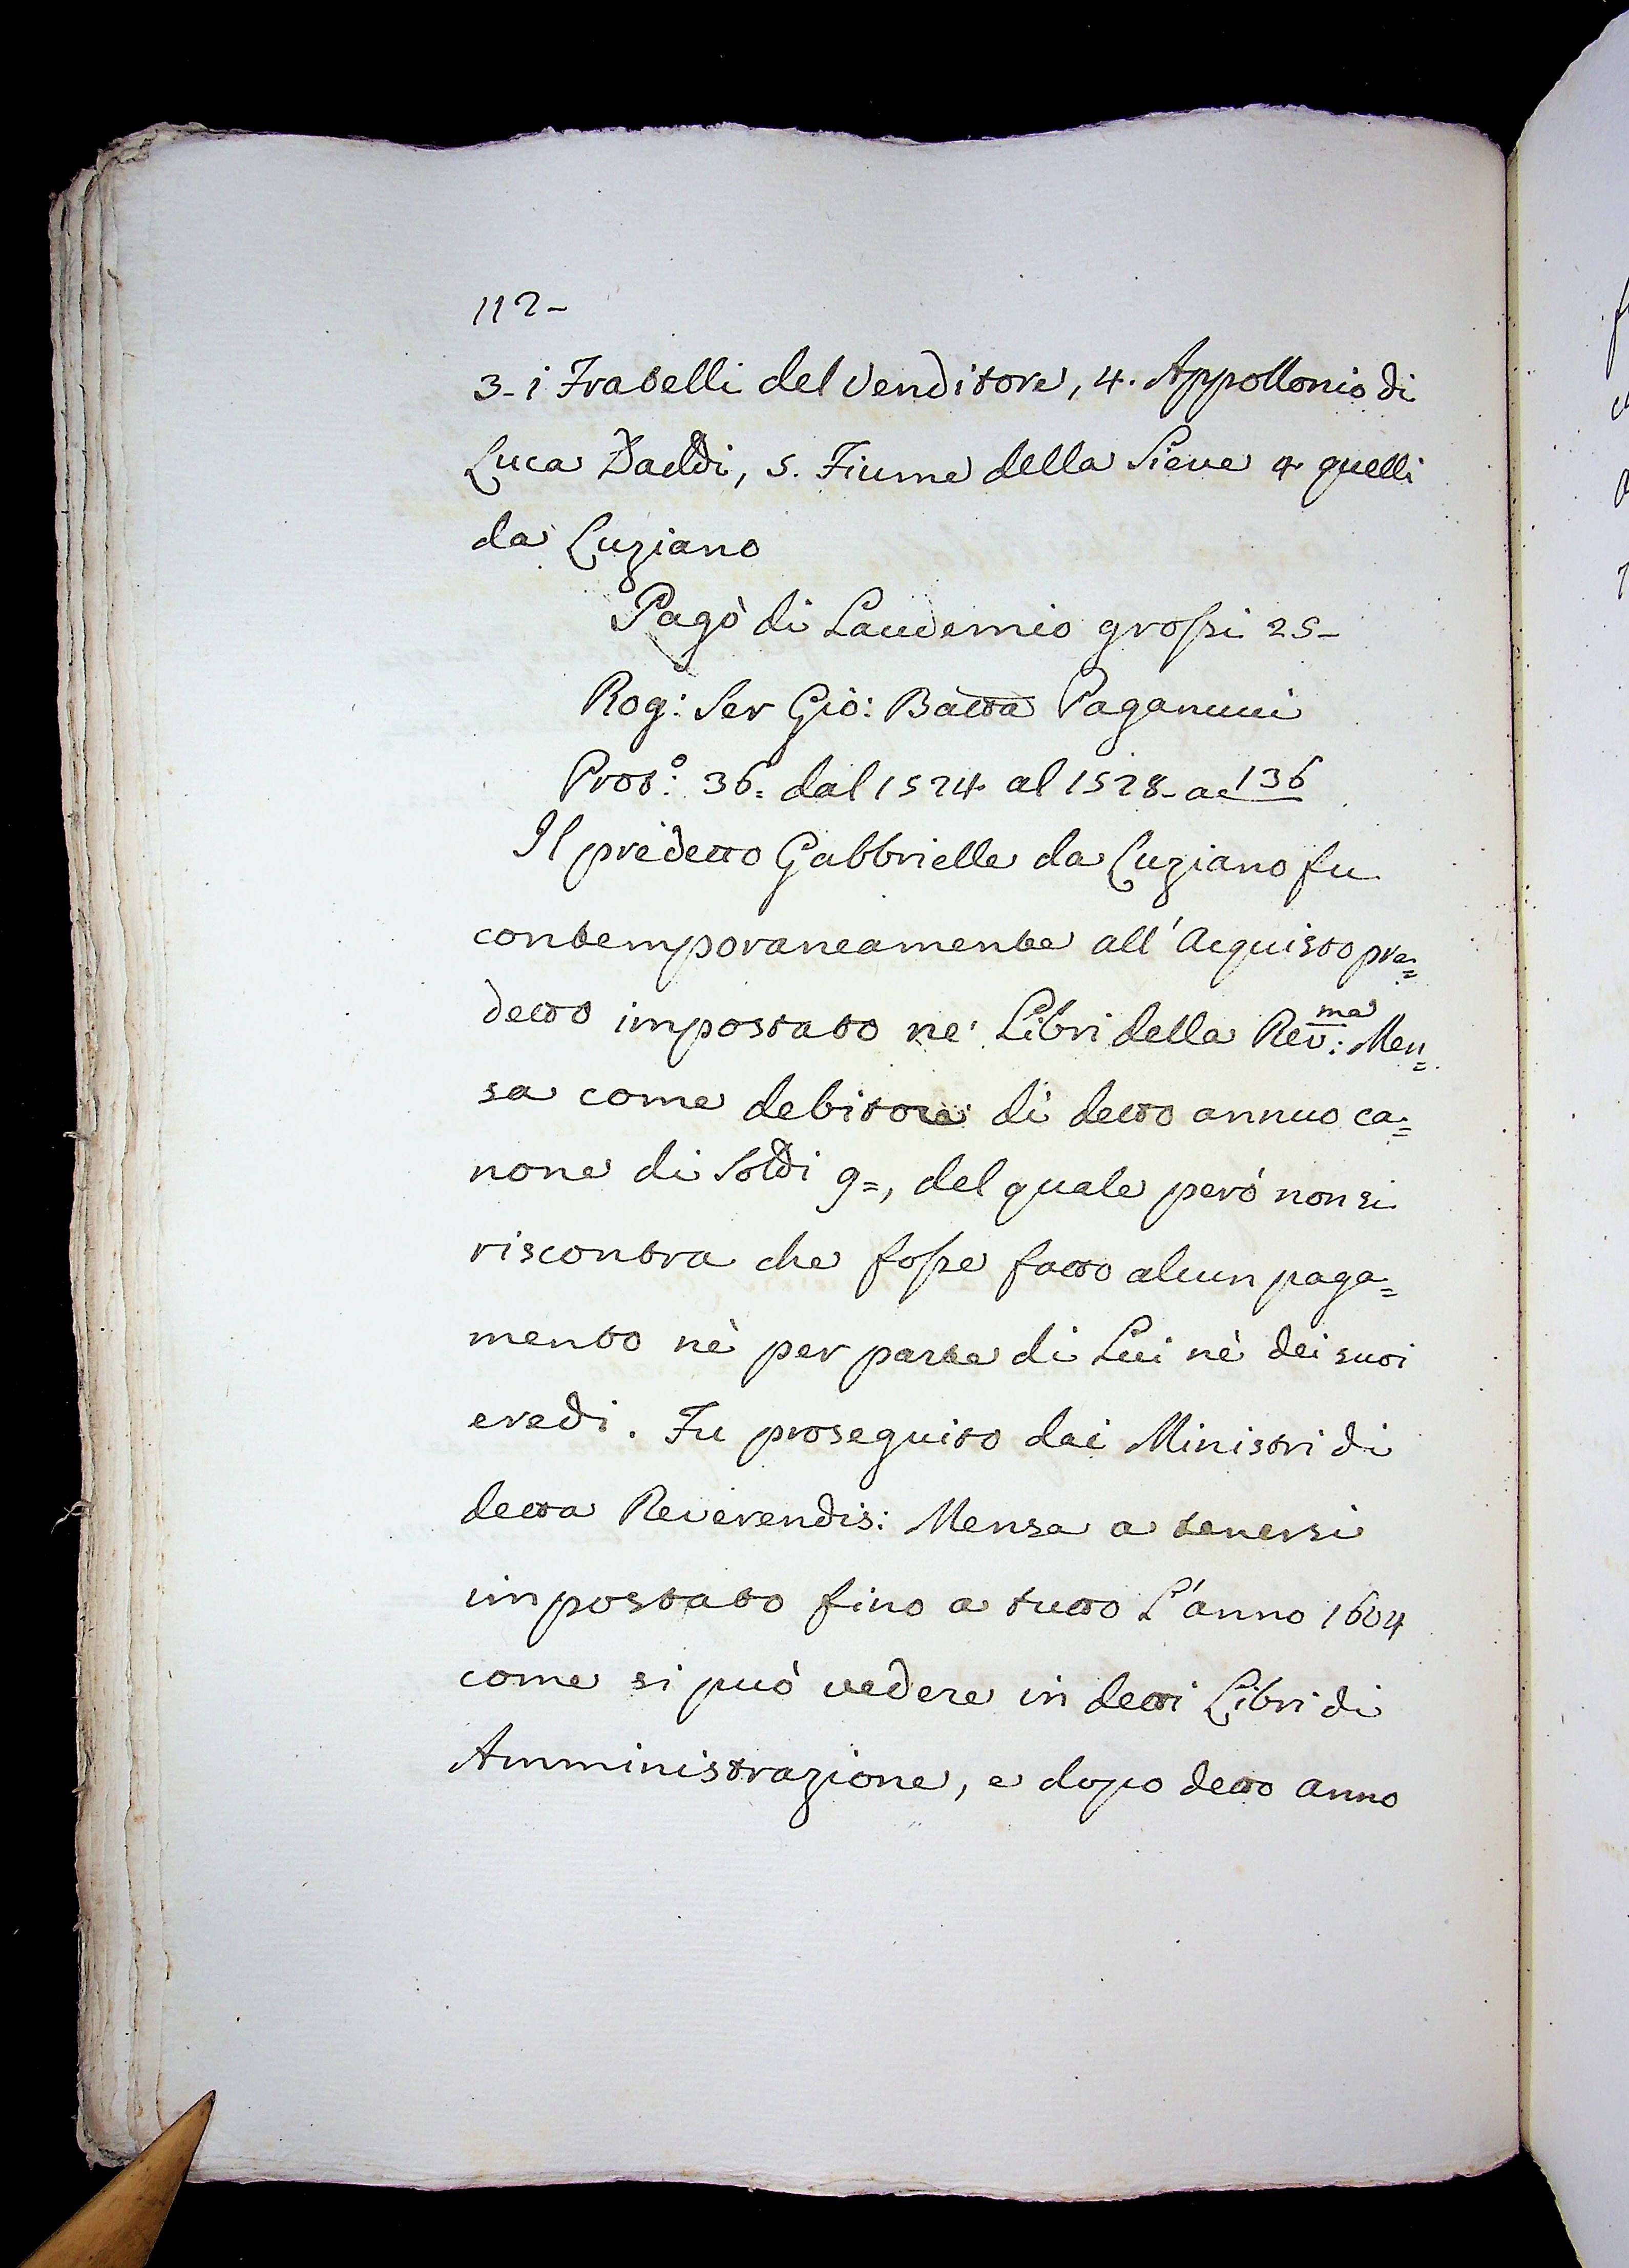 112-
3- i Fratelli del Venditore, 4. Appollonio di
Luca Daddi, 5. Fiume della Sieve 4 quelli
da Luziano
Pagò di Laudemio grossi 25-
Rog: Ser Gio: Batta Paganucci
Prot:o 36= dal 1524 al 1528- ac 136
Il predetto Gabbrielle da Luziano fu
contemporaneamente all'Acquisto pre=
detto impostato ne' Libri della Rev:ma Men=
sa come debitore di detto annuo ca=
none di Soldi 9=, del quale però non si
riscontra che fosse fatto alcun paga=
mento nè per parte di Lui nè dei suoi
eredi. Fu proseguito dai Ministri di
detta Reverendis: Mensa a tenersi
impostato fino a tutto L'anno 1604
come si può vedere in detti Libri di
Amministrazione, e dopo detto anno